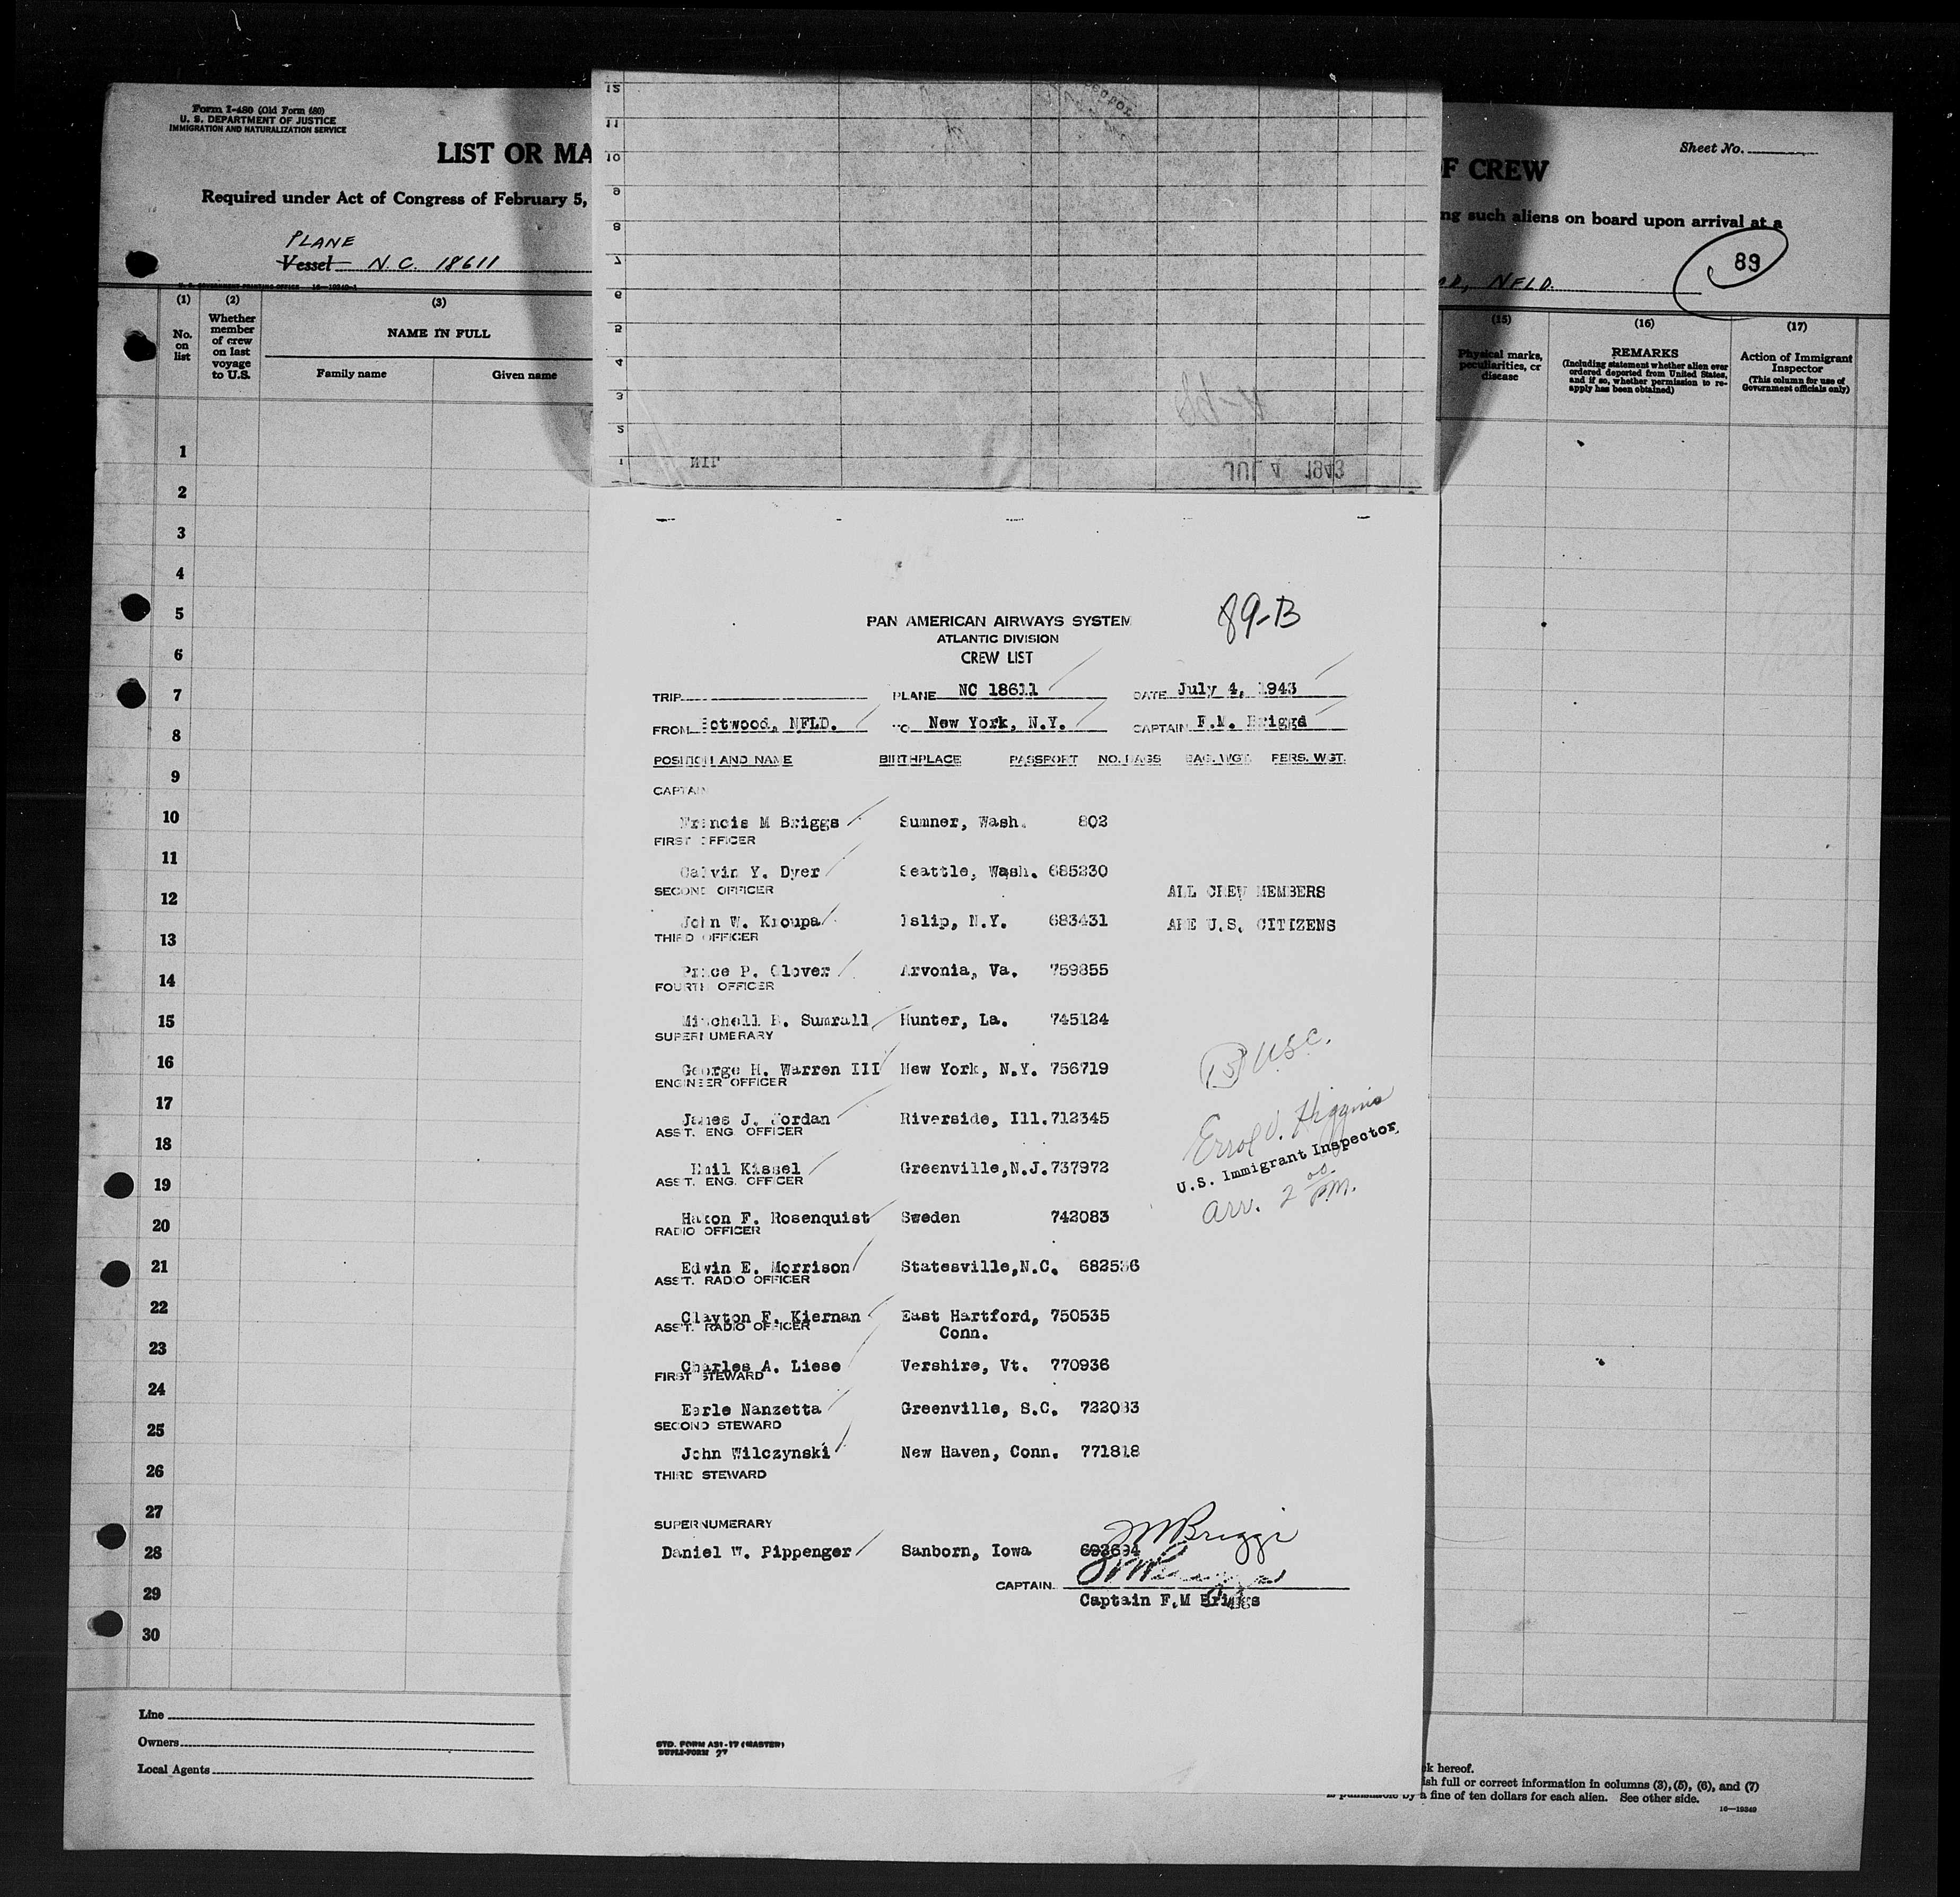 Form I-480 (Old Form 680)
U. S. DEPARTMENT OF JUSTICE
IMMIGRATION AND NATURALIZATION SERVICE
LIST OR MA
F CREW
Sheet No.
Required under Act of Congress of February 5,
ng such aliens on board upon arrival at a
PLANE
Vessel N.C. 18611
NFLD.
89
(1) (2) (3)
No. on list
Whether member of crew on last voyage to U.S.
NAME IN FULL
Family name Given name
(15) (16) (17)
Physical marks, peculiarities, or disease
REMARKS
(Including statement whether alien ever ordered deported from United States, and if so, whether permission to re-apply has been obtained)
Action of Immigrant Inspector
(This column for use of Government officials only)
12
11
10
9
8
7
6
5
4
3
2
1
JUL 4 1943
1
2
3
4
5
6
7
8
9
10
11
12
13
14
15
16
17
18
19
20
21
22
23
24
25
26
27
28
29
30
89-B
PAN AMERICAN AIRWAYS SYSTEM
ATLANTIC DIVISION
CREW LIST
TRIP PLANE NC 18611 DATE July 4, 1943
FROM otwood, NFLD. TO New York, N.Y. CAPTAIN F.M. Briggs
POSITION AND NAME BIRTHPLACE PASSPORT NO. BAGS BAG. WGT. PERS. WGT.
CAPTAIN
Francis M Briggs Sumner, Wash. 802
FIRST OFFICER
Calvin Y. Dyer Seattle, Wash. 685230
SECOND OFFICER
ALL CREW MEMBERS
John W. Kroupa Islip, N.Y. 683431
ARE U.S. CITIZENS
THIRD OFFICER
P. Glover Arvonia, Va. 759855
FOURTH OFFICER
Mitchell B. Sumrall Hunter, La. 745124
SUPERNUMERARY
George H. Warren III New York, N.Y. 756719
ENGINEER OFFICER
James J. Jordan Riverside, Ill. 712345
ASST. ENG. OFFICER
Emil Kissel Greenville,N.J. 737972
ASST. ENG. OFFICER
Hakon F. Rosenquist Sweden 742083
RADIO OFFICER
Edwin E. Morrison Statesville,N.C. 682536
ASST. RADIO OFFICER
Clayton F. Kiernan East Hartford, 750535
Conn.
ASST. RADIO OFFICER
Charles A. Liese Vershire, Vt. 770936
FIRST STEWARD
Earle Nanzetta Greenville, S.C. 722083
SECOND STEWARD
John Wilczynski New Haven, Conn. 771818
THIRD STEWARD
SUPERNUMERARY
Daniel W. Pippenger Sanborn, Iowa 693694
15 USC.
Errol V. Higgins
U.S. Immigrant Inspector
arr. 2 00 P.M.
FMBriggs
CAPTAIN
Captain F.M Briggs
STD. FORM A31-17 (MASTER)
DUPLI-FORM 27
Line
Owners
Local Agents
k hereof.
ish full or correct information in columns (3), (5), (6), and (7)
is punishable by a fine of ten dollars for each alien. See other side.
16—19349